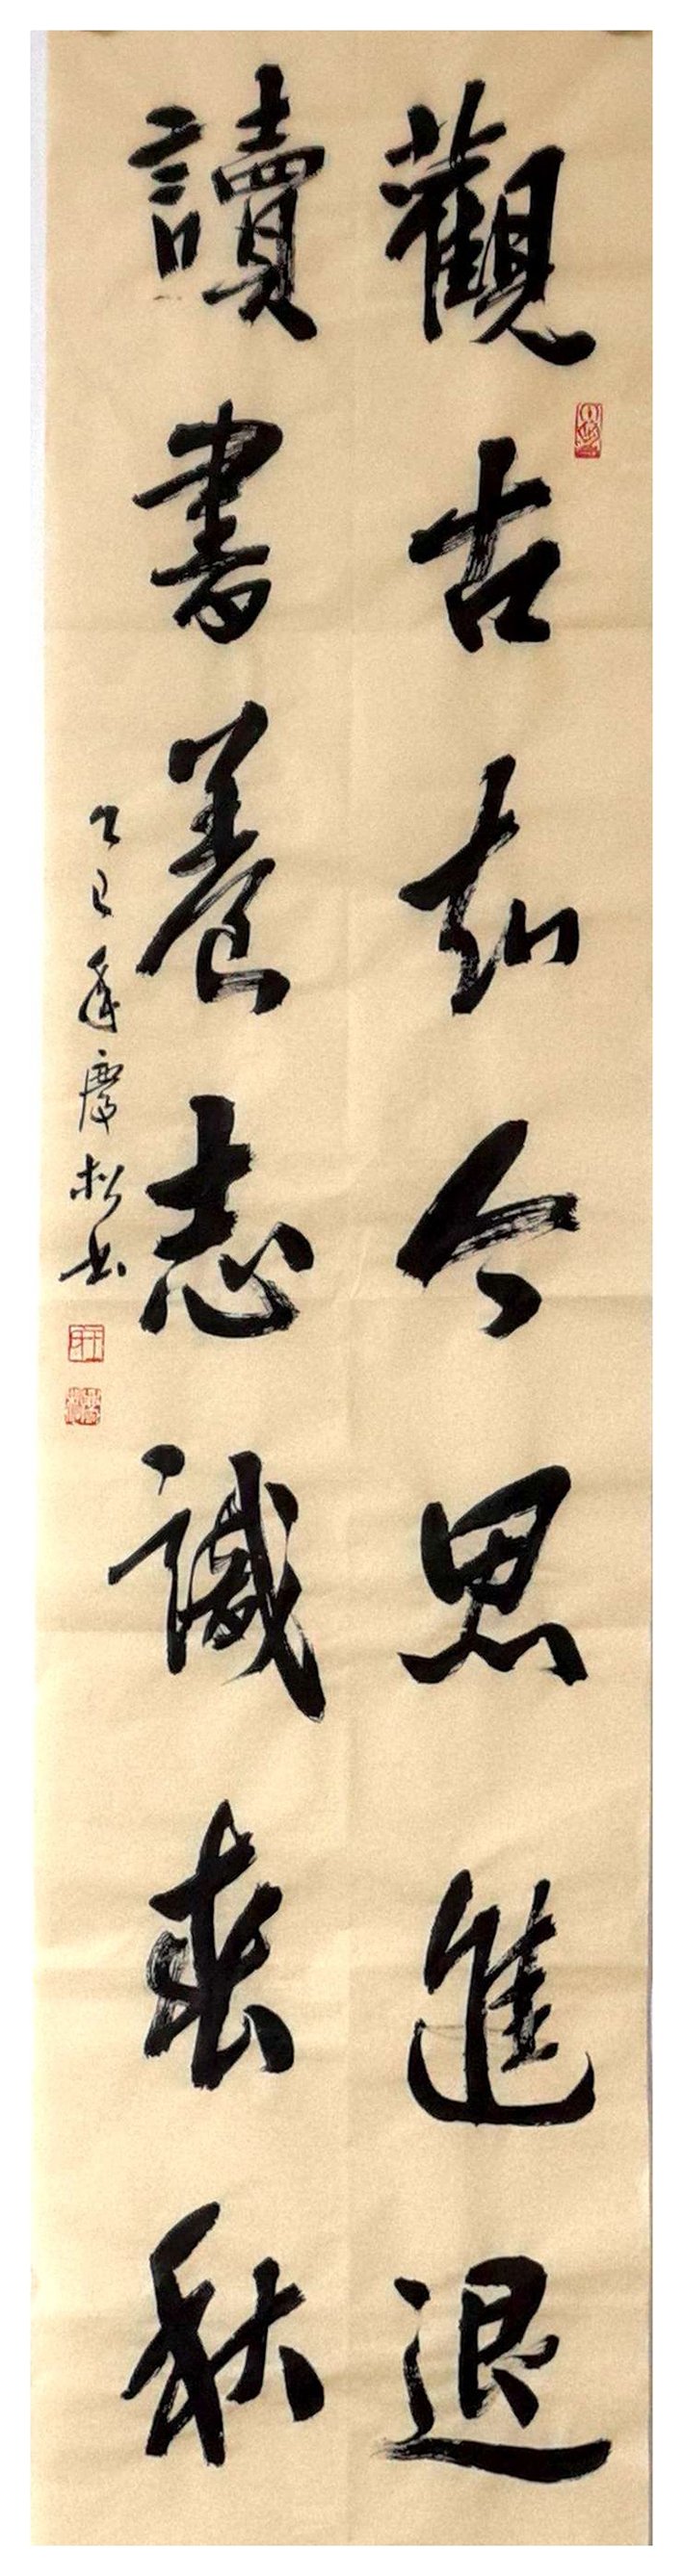 觀古知今思進退
讀書養志識春秋
乙巳年慶松書